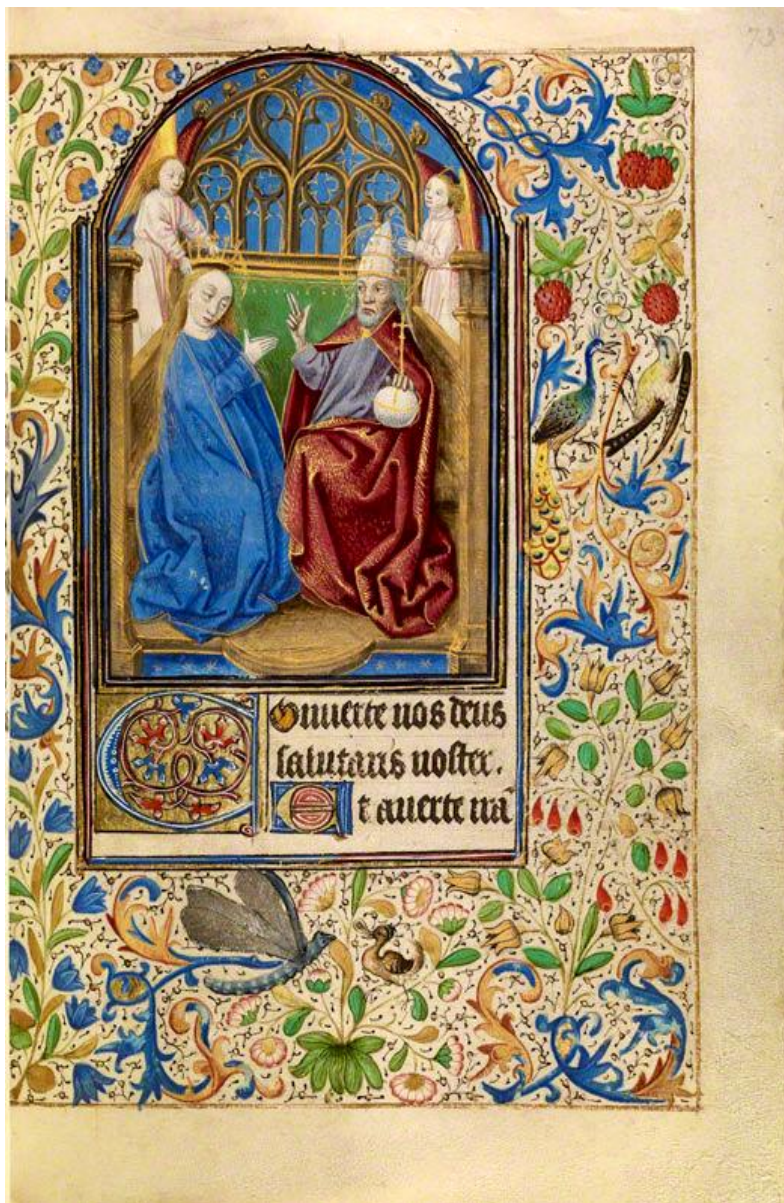 Conuerte nos deus
salutaris noster.
Et auerte irã